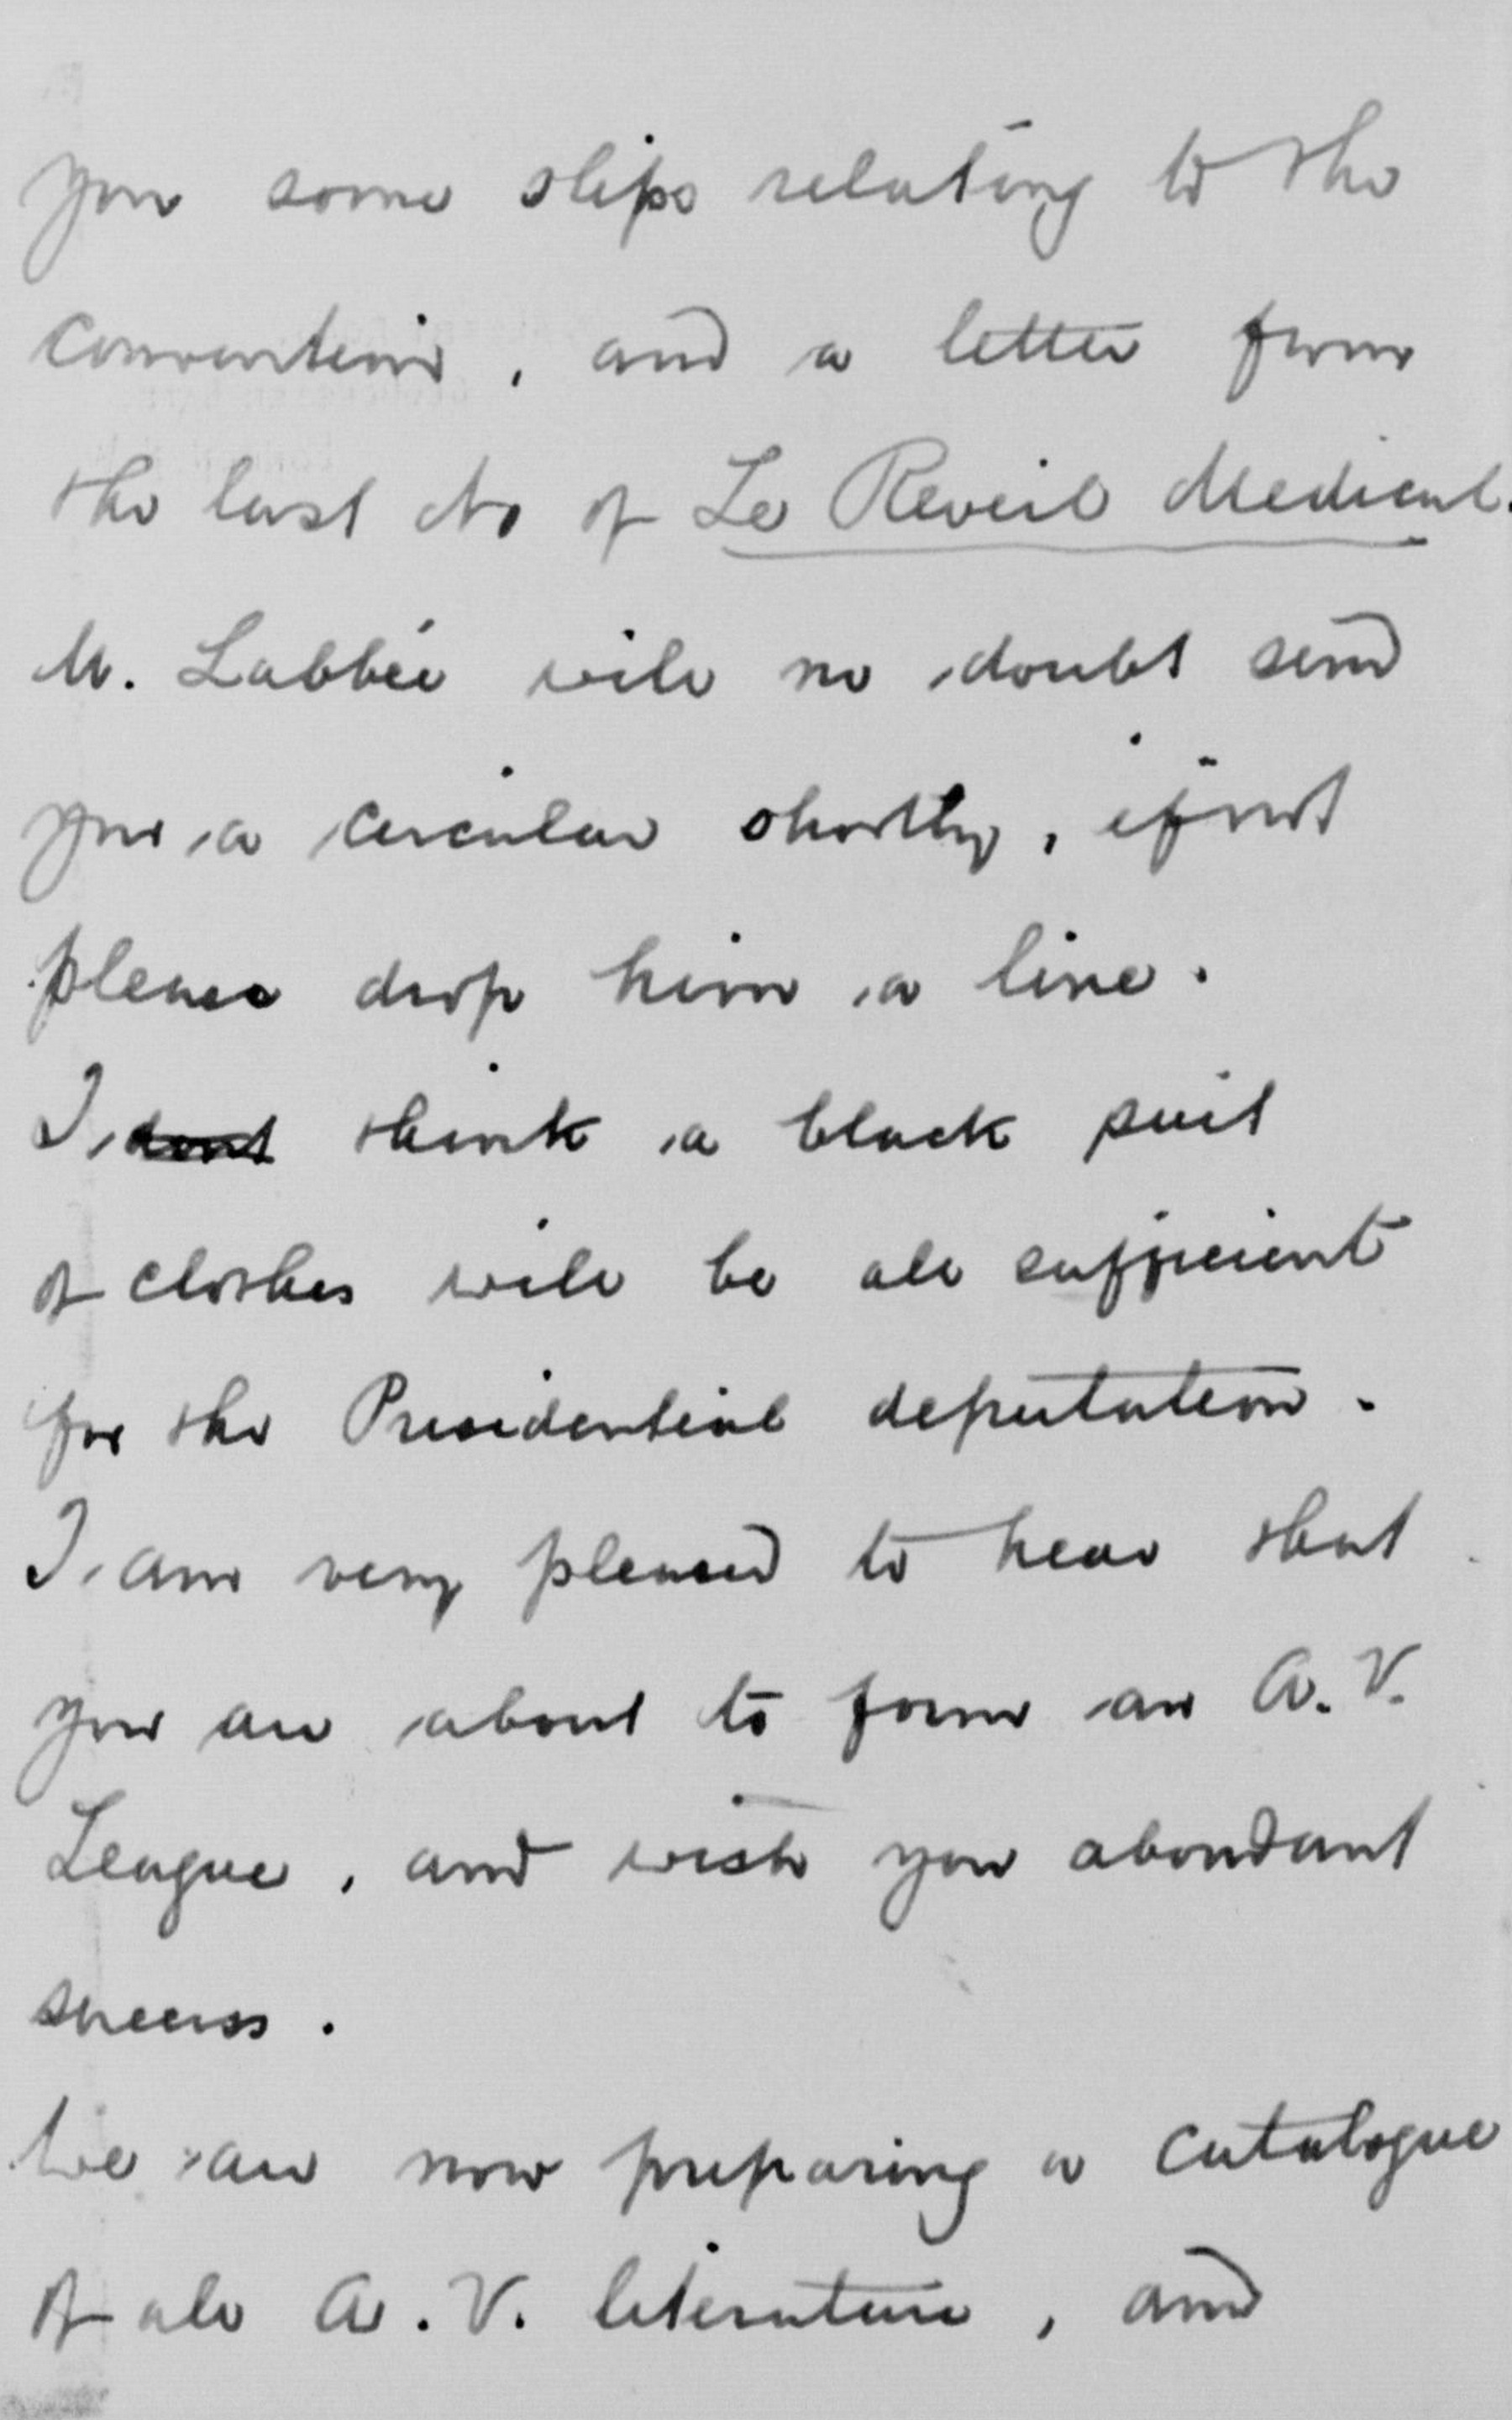 you some slips relating to the
Convention, and a letter from
the last No of Le Reveil Medical.
M. Labbée will no doubt send
you a circular shortly, if not
please drop him a line.
I dont think a black suit
of clothes will be all sufficient
for the Presidential deputation.
I am very pleased to hear that
you are about to form an A.V.
League, and wish you abundant
success.
We are now preparing a Catalogue
of all A.V. literature, and